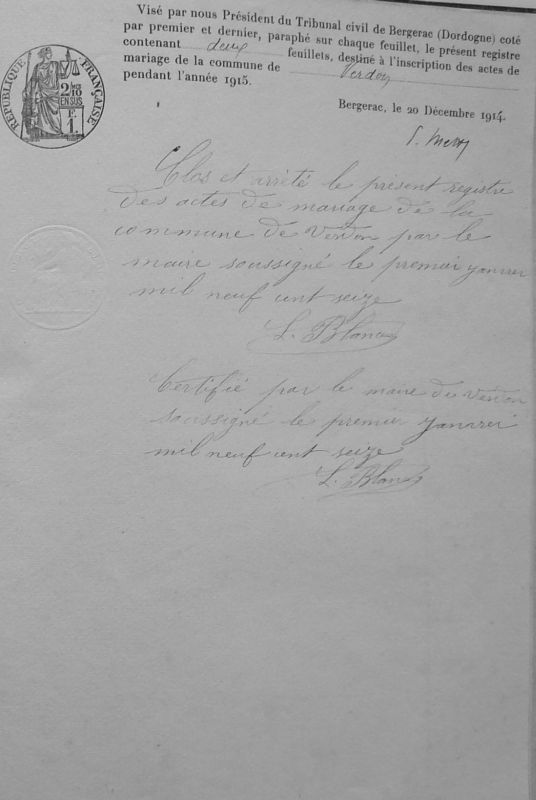 Visé par nous Président du Tribunal civil de Bergerac (Dordogne) coté
par premier et dernier, paraphé sur chaque feuillet, le présent registre
contenant deux feuillets, destiné à l'inscription des actes de
mariage de la commune de Verdon
pendant l'année 1915.
RÉPUBLIQUE FRANÇAISE
2/10
EN SUS
F.
1.
Bergerac, le 20 Décembre 1914.
Clos et arrêté le présent registre
des actes de mariage de la
commune de Verdon par le
maire soussigné le premier janvier
mil neuf cent seize
L. Blanc
Certifié par le maire de Verdon
soussigné le premier janvier
mil neuf cent seize
L. Blanc